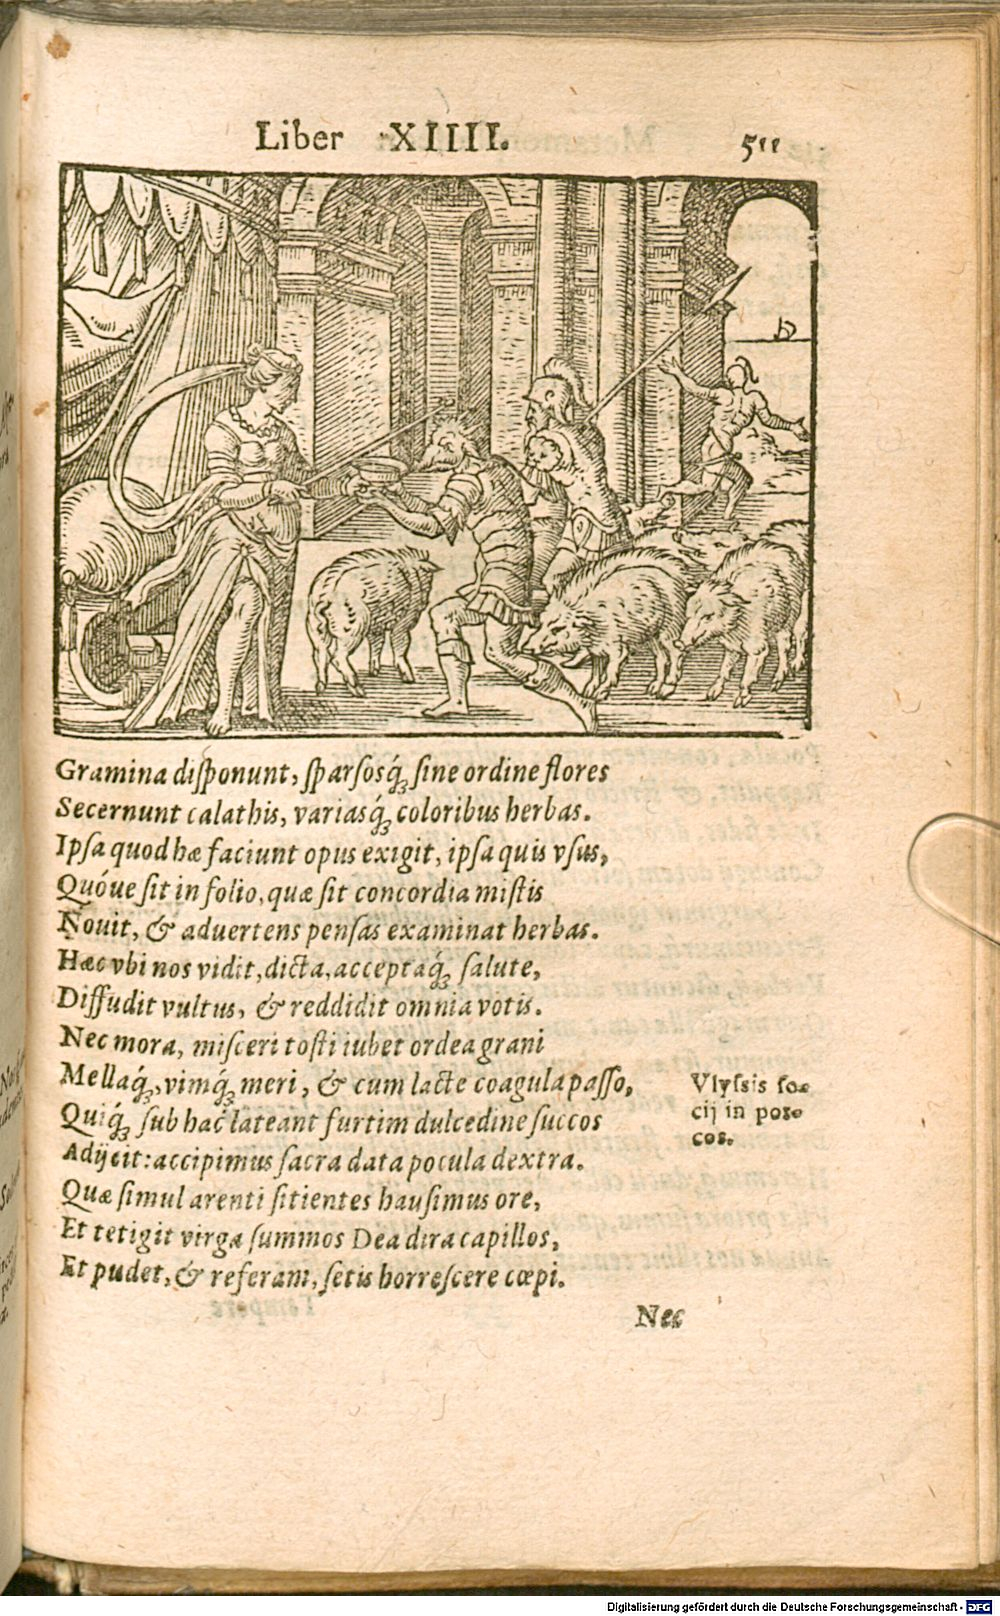 Liber XIIII. 511
Gramina disponunt, sparsosq́ꝫ sine ordine flores
Secernunt calathis, variasq́ꝫ coloribus herbas.
Ipsa quod hæ faciunt opus exigit, ipsa quis vsus,
Quóue sit in folio, quæ sit concordia mistis
Nouit, & aduertens pensas examinat herbas.
Hæc vbi nos vidit, dicta, acceptaq́ꝫ salute,
Diffudit vultus, & reddidit omnia votis.
Nec mora, misceri tosti iubet ordea grani
Mellaq́ꝫ, vimq́ꝫ meri, & cum lacte coagula passo,
Quiq́ꝫ sub hac lateant furtim dulcedine succos
Adijcit: accipimus sacra data pocula dextra.
Quæ simul arenti sitientes hausimus ore,
Et tetigit virga summos Dea dira capillos,
Et pudet, & referam, setis horrescere cœpi.
Vlyssis so=
cij in por=
cos.
Nec
Digitalisierung gefördert durch die Deutsche Forschungsgemeinschaft - DFG